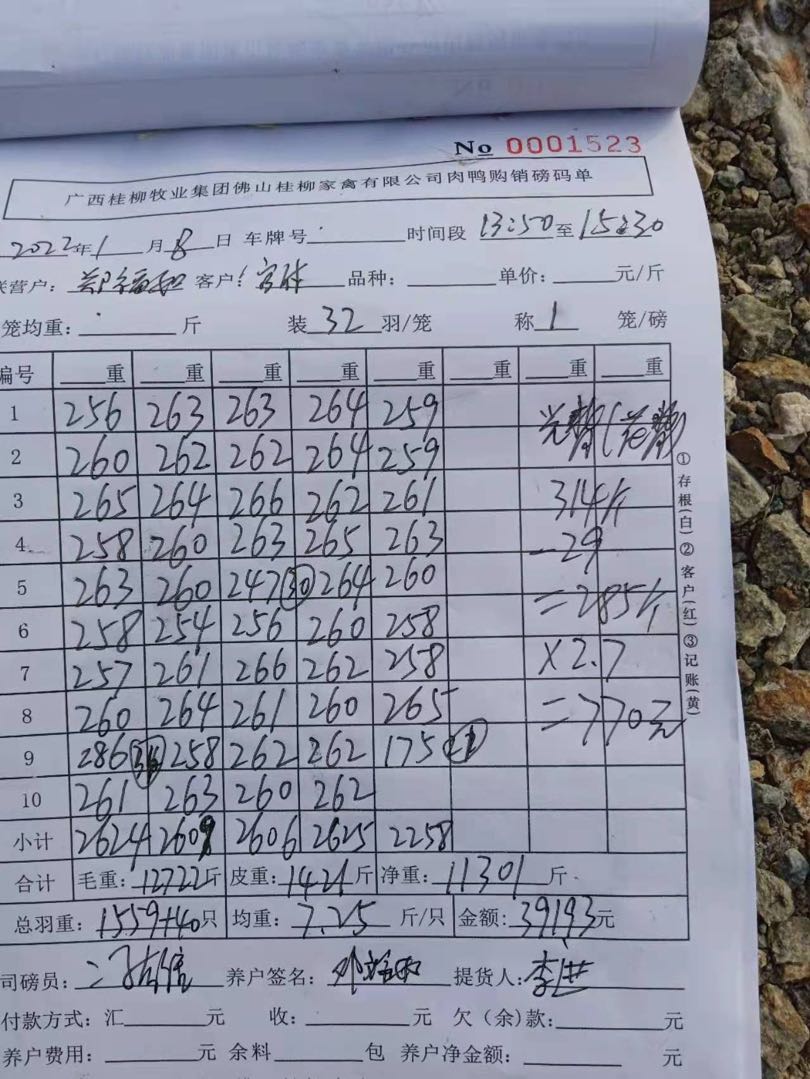 No 0001523
广西桂柳牧业集团佛山桂柳家禽有限公司肉鸭购销磅码单
2022年1月8日 车牌号 时间段 13:50至15:30
联营户: 客户: 品种: 单价: 元/斤
笼均重: 斤 装 32 羽/笼 称 1 笼/磅
编号 重 重 重 重 重 重 重 重
1 256 263 263 264 259
2 260 262 262 264 259
3 265 264 266 262 261 314斤
4 258 260 263 265 263 -29
5 263 260 247 30 264 260 =285斤
6 258 254 256 260 258
7 257 261 266 262 258 ×2.7
8 260 264 261 260 265 =770元
9 286 258 262 262 175
10 261 263 260 262
小计 2624 2609 2606 2625 2258
合计 毛重: 12722斤 皮重: 1421斤 净重: 11301斤
总羽重: 1559+40只 均重: 7.25 斤/只 金额: 39193元
司磅员: 养户签名: 提货人: 李
付款方式: 汇 元 收: 元 欠(余)款: 元
养户费用: 元 余料 包 养户净金额: 元
①存根(白)②客户(红)③记账(黄)